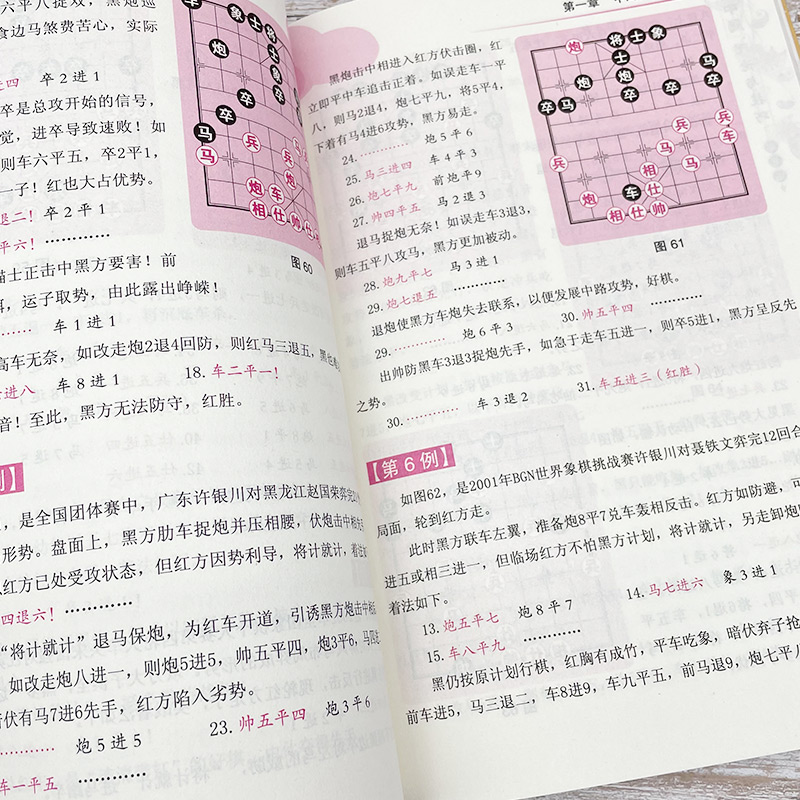 六平八捉双，黑炮巡
食边马煞费苦心，实际
进四 卒2进1
卒是总攻开始的信号，
觉，进卒导致速败！如
则车六平五，卒2平1，
一子！红也大占优势。
退二！ 卒2平1
平六！…………
图60
士正击中黑方要害！前
，运子取势，由此露出峥嵘！
……… 车1进1
高车无奈，如改走炮2退4回防，则红马三退五，黑
进八 车8进1 18. 车二平一！
音！至此，黑方无法防守，红胜。
例】
，是全国团体赛中，广东许银川对黑龙江赵国荣弈完
形势。盘面上，黑方肋车捉炮并压相腰，伏炮击中相
红方已处受攻状态，但红方因势利导，将计就计，着法
四退六！…………
“将计就计”退马保炮，为红车开道，引诱黑方炮击中相
如改走炮八进一，则炮5进5，帅五平四，炮3平6，马四
伏有马7进6先手，红方陷入劣势。
………… 炮5进5 23. 帅五平四 炮3平6
车一平五
第一章
黑炮击中相进入红方伏击圈，红
立即平中车追击正着。如误走车一平
八，则马2退4，炮七平九，将5平4，
下着有马4进6攻势，黑方易走。
24. ………… 炮5平6
25. 马三进四 车4平3
26. 炮七平九 前炮平9
27. 帅四平五 马2退3
退马捉炮无奈！如误走车3退3，
则车五平八攻马，黑方更加被动。
28. 炮九平七 马3进1
29. 炮七退五 …………
图61
退炮使黑方车炮失去联系，以便发展中路攻势，好棋。
29. ………… 炮6平3 30. 帅五平四 …………
出帅防黑车3退3捉炮先手，如急于走车五进一，则卒5进1，黑方呈反先
之势。
30. ………… 车3退2 31. 车五进三（红胜）
【第6例】
如图62，是2001年BGN世界象棋挑战赛许银川对聂铁文弈完12回合
局面，轮到红方走。
此时黑方联车左翼，准备炮8平7兑车轰相反击。红方如防避，可
进五或相三进一，但临场红方不怕黑方计划，将计就计，另走卸炮
着法如下。
13. 炮五平七 炮8平7 14. 马七进六 象3进1
15. 车八平九 …………
黑仍按原计划行棋，红胸有成竹，平车吃象，暗伏弃子抢
前车进5，马三退二，车8进9，车九平五，前马退9，炮七平八